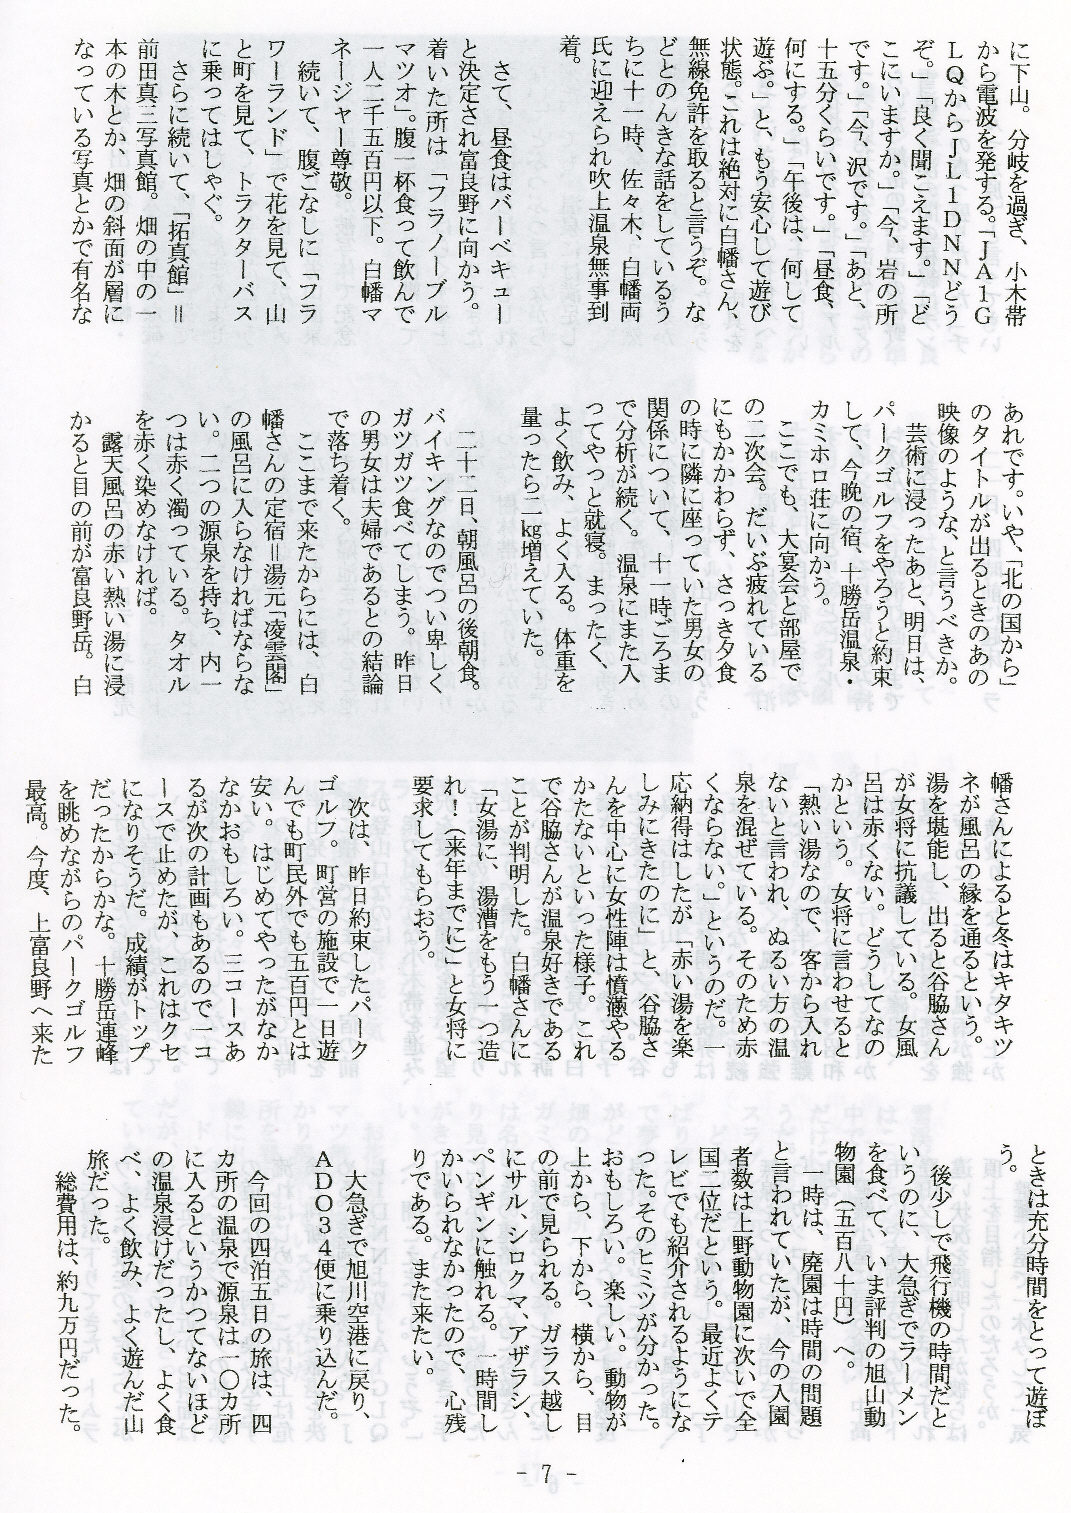 に下山。分岐を過ぎ、小木帯
から電波を発する。「ＪＡ１Ｇ
ＬＱからＪＬ１ＤＮＮどう
ぞ。」「良く聞こえます。」「ど
こにいますか。」「今、岩の所
です。」「今、沢です。」「あと、
十五分くらいです。」「昼食、
何にする。」「午後は、何して
遊ぶ。」と、もう安心して遊び
状態。これは絶対に白幡さん、
無線免許を取ると言うぞ。な
どとのんきな話をしているう
ちに十一時、佐々木、白幡両
氏に迎えられ吹上温泉無事到
着。
さて、昼食はバーベキュー
と決定され富良野に向かう。
着いた所は「フラノーブル
マツオ」。腹一杯食って飲んで
一人二千五百円以下。白幡マ
ネージャー尊敬。
続いて、腹ごなしに「フラ
ワーランド」で花を見て、山
と町を見て、トラクターバス
に乗ってはしゃぐ。
さらに続いて、「拓真館」＝
前田真三写真館。畑の中の一
本の木とか、畑の斜面が層に
なっている写真とかで有名な
あれです。いや、「北の国から」
のタイトルが出るときのあの
映像のような、と言うべきか。
芸術に浸ったあと、明日は、
パークゴルフをやろうと約束
して、今晩の宿、十勝岳温泉・
カミホロ荘に向かう。
ここでも、大宴会と部屋で
の二次会。だいぶ疲れている
にもかかわらず、さっき夕食
の時に隣に座っていた男女の
関係について、十一時ごろま
で分析が続く。温泉にまた入
ってやっと就寝。まったく、
よく飲み、よく入る。体重を
量ったら二㎏増えていた。
二十二日、朝風呂の後朝食。
バイキングなのでつい卑しく
ガツガツ食べてしまう。昨日
の男女は夫婦であるとの結論
で落ち着く。
ここまで来たからには、白
幡さんの定宿＝湯元「凌雲閣」
の風呂に入らなければならな
い。二つの源泉を持ち、内一
つは赤く濁っている。タオル
を赤く染めなければ。
露天風呂の赤い熱い湯に浸
かると目の前が富良野岳。白
幡さんによると冬はキタキツ
ネが風呂の縁を通るという。
湯を堪能し、出ると谷脇さん
が女将に抗議している。女風
呂は赤くない。どうしてなの
かという。女将に言わせると
「熱い湯なので、客から入れ
ないと言われ、ぬるい方の温
泉を混ぜている。そのため赤
くならない。」というのだ。一
応納得はしたが「赤い湯を楽
しみにきたのに」と、谷脇さ
んを中心に女性陣は憤懣やる
かたないといった様子。これ
で谷脇さんが温泉好きである
ことが判明した。白幡さんに
「女湯に、湯漕をもう一つ造
れ！（来年までに）」と女将に
要求してもらおう。
次は、昨日約束したパーク
ゴルフ。町営の施設で一日遊
んでも町民外でも五百円とは
安い。はじめてやったがなか
なかおもしろい。三コースあ
るが次の計画もあるので一コ
ースで止めたが、これはクセ
になりそうだ。成績がトップ
だったからかな。十勝岳連峰
を眺めながらのパークゴルフ
最高。今度、上富良野へ来た
ときは充分時間をとって遊ぼ
う。
後少しで飛行機の時間だと
いうのに、大急ぎでラーメン
を食べて、いま評判の旭山動
物園（五百八十円）へ。
一時は、廃園は時間の問題
と言われていたが、今の入園
者数は上野動物園に次いで全
国二位だという。最近よくテ
レビでも紹介されるようにな
った。そのヒミツが分かった。
おもしろい。楽しい。動物が
上から、下から、横から、目
の前で見られる。ガラス越し
にサル、シロクマ、アザラシ、
ペンギンに触れる。一時間し
かいられなかったので、心残
りである。また来たい。
大急ぎで旭川空港に戻り、
ＡＤＯ３４便に乗り込んだ。
今回の四泊五日の旅は、四
カ所の温泉で源泉は一〇カ所
に入るというかつてないほど
の温泉浸けだったし、よく食
べ、よく飲み、よく遊んだ山
旅だった。
総費用は、約九万円だった。
- 7 -